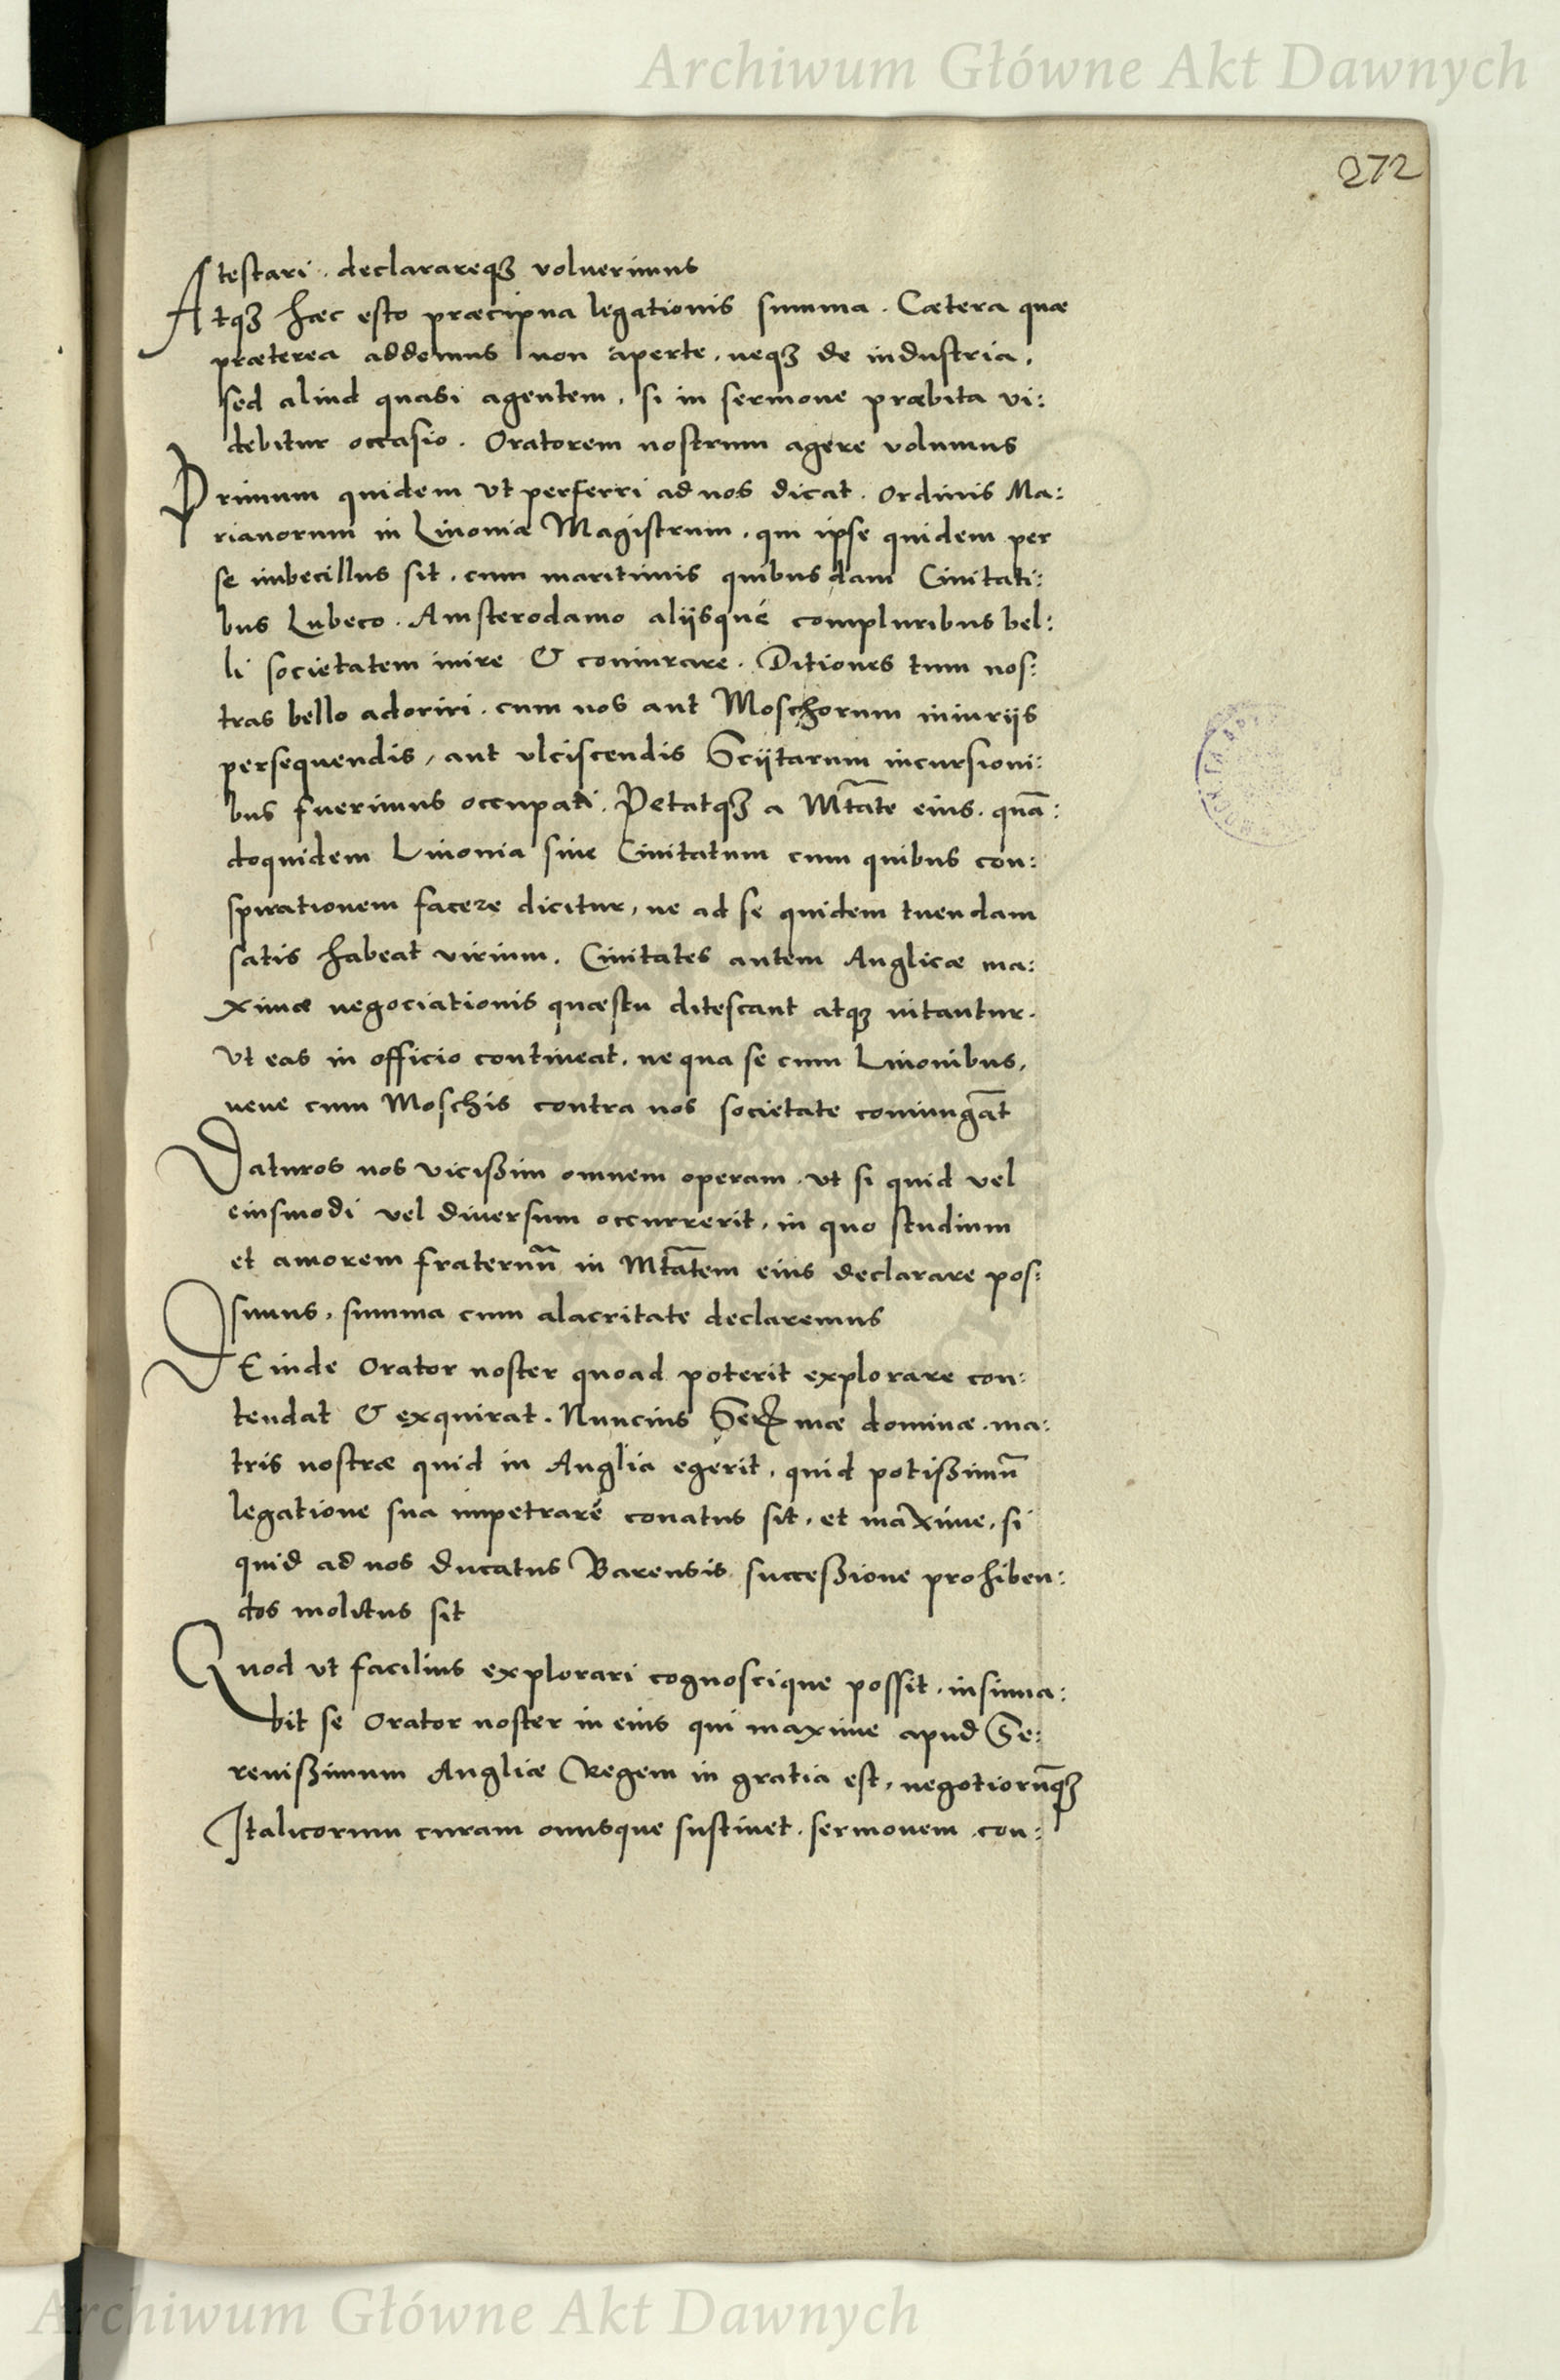 Archiwum Główne Akt Dawnych
272
testari. declarareqꝫ voluerimus
Atqꝫ hæc esto præcipua legationis summa. Cætera quæ
præterea addemus non aperte, neqꝫ de industria,
sed aliud quasi agentem, si in sermone præbita vi:
debitur occasio. Oratorem nostrum agere volumus
Primum quidem vt perferri ad nos dicat. Ordinis Ma:
rianorum in Liuonia Magistrum, qui ipse quidem per
se imbecillus sit, cum maritimis quibusdam Ciuitati:
bus Lubeco. Amsterodamo alijsqué compluribus bel:
li societatem inire & coniurare. Ditiones tum nos:
tras bello adoriri, cum nos aut Moschorum iniurijs
persequendis, aut vlciscendis Scijtarum incursioni:
bus fuerimus occupati. Petatqꝫ a Mtāte eius, quā:
doquidem Liuonia siue Ciuitatum cum quibus con:
spirationem facere dicitur, ne ad se quidem tuendam
satis habeat virium. Ciuitates autem Anglicæ ma:
ximæ negociationis quæstu ditescant atqꝫ nitantur.
Vt eas in officio contineat, ne qua se cum Liuonibus,
neue cum Moschis contra nos societate coniungāt
Daturos nos vicißim omnem operam, vt si quid vel
eiusmodi vel diuersum occurrerit, in quo studium
et amorem fraternū in Mtātem eius declarare pos:
simus, summa cum alacritate declaremus
DEinde Orator noster quoad poterit explorare con:
tendat & exquirat. Nuncius Serꝫmæ dominæ ma:
tris nostræ quid in Anglia egerit, quid potißimū
legatione sua impetraré conatus sit, et maxime, si
quid ad nos ducatus Barensis succeßione prohiben:
dos molitus sit
Quod vt facilius explorari cognoscique possit, insinua:
bit se Orator noster in eius qui maxime apud Se:
renißimum Angliæ Regem in gratia est, negotiorūqꝫ
Italicorum curam onusque sustinet, sermonem con:
Archiwum Główne Akt Dawnych